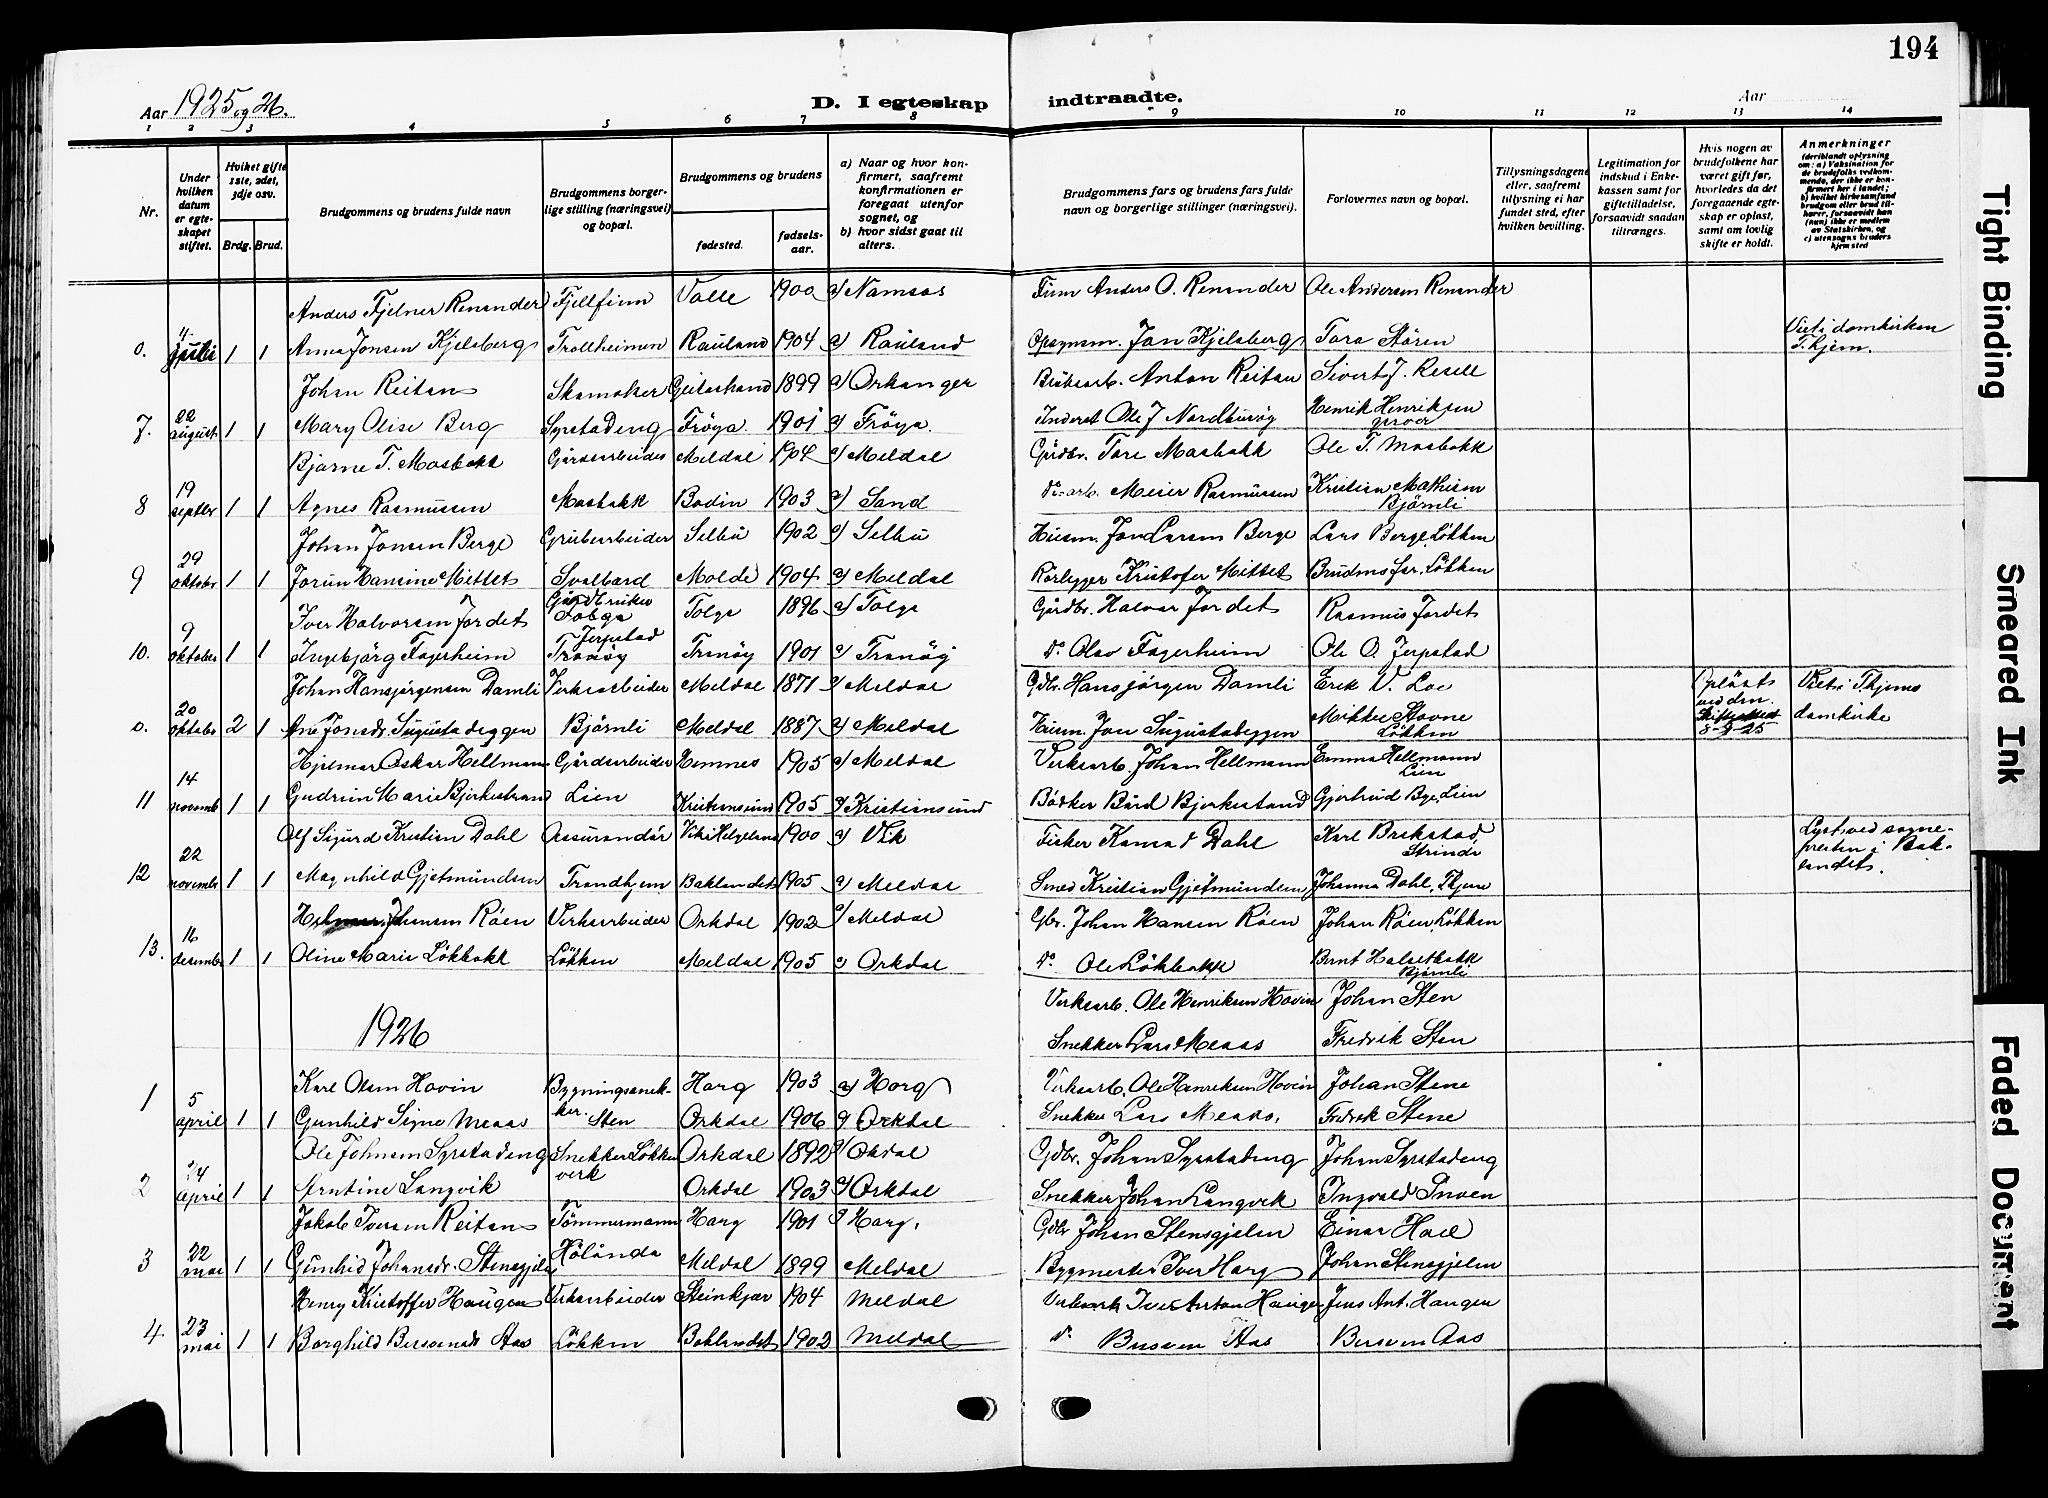 194
Aar 1925 og 26.
D. I egteskap indtraadte.
Aar
1 2 3 4 5 6 7 8 9 10 11 12 13 14
Nr.
Under hvilken datum er egteskapet stiftet.
Hvilket gifte 1ste, 2det, 3dje osv.
Brdg. Brud.
Brudgommens og brudens fulde navn
Brudgommens borgerlige stilling (næringsvei) og bopæl.
Brudgommens og brudens
fødested.
fødselsaar.
a) Naar og hvor konfirmert, saafremt konfirmationen er foregaat utenfor sognet, og
b) hvor sidst gaat til alters.
Brudgommens fars og brudens fars fulde navn og borgerlige stillinger (næringsvei).
Forlovernes navn og bopæl.
Tillysningsdagene eller, saafremt tillysning ei har fundet sted, efter hvilken bevilling.
Legitimation for indskud i Enkekassen samt for giftetilladelse, forsaavidt saadan tiltrænges.
Hvis nogen av brudefolkene har været gift før, hvorledes da det foregaaende egteskap er opløst, samt om lovlig skifte er holdt.
Anmerkninger (deriblandt oplysning om: a) Vaksination for de brudefolks vedkommende, der ikke er konfirmert her i landet; b) hvilket kirkesamfund brudgom eller brud tilhører, forsaavidt han (hun) ikke er medlem av Statskirken, og c) utensogns bruders hjemsted
Anders Fjelner Renander Fjellfinn Valle 1900 a) Namsos Finn Anders O. Renander Ole Andersen Renander
0. 4 juli 1 1 Anna Jonsen Kjelsberg Trollheimen Rauland 1904 a) Rauland Opsynsm. Jon Kjelsberg Tora Stören Viet i domkirken T.hjem.
Johan Reitan Skomaker Geitastrand 1899 a) Orkanger Anton Reitan Sivert J. Resell
7. 22 august 1 1 Mary Olise Berg Syrstadeng Fröya 1901 a) Fröya. Ole J Henrik Henriksen
Bjarne T. Mosbakk Gårdsarbeider Meldal 1904 a) Meldal Gårdbr. Tore Mosbakk Ole T. Mosbakk
8 19 septbr 1 1 Agnes Rasmussen Mosbakk Bodin 1903 a) Sand Meier Rasmussen Kristian Mathisen Bjørnli
Johan Jonsen Berge Grubearbeider Selbu 1902 a) Selbu Husm. Jon Larsen Berge Lars Berge, Løkken
9 29 oktobr 1 1 Jorun Hansine Mittet Svalbard Molde 1904 a) Meldal Rörlegger Kristofer Mittet Brudens far, Løkken
Iver Halvorsen Jordet Gårdbruker Tolga Tolga 1896 a) Tolga Gårdbr. Halvar Jordet Rasmus Jordet
10. 9 oktober 1 1 Ingebjörg Fagerheim Jerpstad Tranöy Tranöy 1901 a) Tranöy do Olav Fagerheim Ole O. Jerpstad
Johan Hansjørgensen Damli Verksarbeider Meldal 1871 a) Meldal Gdbr. Hansjörgen Damli Erik V. Loe Opløst ved døm. 8-9-25 Viet i T.hjems
0. 20 oktobr 2 1 Ane Jonsdr. Sugustadeggen Bjørnli Meldal 1887 a) Meldal Husm. Jon Sugustadeggen Mikkel Stovne Løkken domkirke
Hjelmar Oskar Hellmann Gårdsarbeider Hemnes 1905 a) Meldal Verksarb. Johan Hellmann Emma Hellmann Lien
11 14 novemb 1 1 Gudrun Marie Bjerkestrand Lien Kristiansund 1905 a) Kristiansund Bødker Bård Bjerkestrand Gjertrud Bye, Lien
Olf Sigurd Kristian Dahl Assurandör Vik i Helgeland 1900 a) Vik Fisker Konrad Dahl Karl Brekstad, Strinda Lyst ved sogne-
12 22 novembr 1 1 Magnhild Gjetmundsen Trondhjem Baklandet 1905 a) Meldal Smed Kristian Gjetmundsen Johanna Dahl, T.hjem presten i Bak-
landet.
Johansen Röen Verksarbeider Orkdal 1902 a) Meldal Gbr. Johan Hansen Röen Johan Röen, Løkken
13. 16 desember 1 1 Oline Marie Løkbakk Løkken Meldal 1905 a) Orkdal do Ole Løkbakk Bernt Halsetbakk Bjørnli
Verksarb. Ole Henriksen Hovin Johan Sten
1926
Snekker Lars Meaas Fredrik Sten
1 Karl Olsen Hovin Bygningssnek- Horg 1903 a) Horg Verksarb. Ole Henriksen Hovin Johan Stene
5 april 1 1 Gunhild Signe Meaas ker. Sten Orkdal 1906 a) Orkdal Snekker Lars Meaas. Fredrik Stene
Ole Johnsen Syrstadeng Snekker Løkken Orkdal 1892 a) Okdal Gdbr. Johan Syrstadeng Johan Syrstadeng
2 april 1 1 Arntine Langvik verk Orkdal 1903 a) Orkdal Snekker Johan Langvik Ingvald Snoen
Jakob Iversen Reitan Tömmermann Horg 1901 a) Horg. Gdbr Johan Stensgjelen Einar Hoel
3 22 mai 1 1 Gunhild Johansdr. Stensgjelen Hölanda Meldal 1899 Meldal Bygmester Iver Horg Johan Stensgjelen
Henry Kristoffer Haugen Verksarbeider Steinkjær 1904 Meldal Verksarb Iver Anton Haugen Jens Ant. Haugen
4 23 mai 1 1 Borghild Aas Løkken Baklandet 1902 Meldal do Bersven Aas Bersven Aas
Tight Binding
Smeared Ink
Faded Document